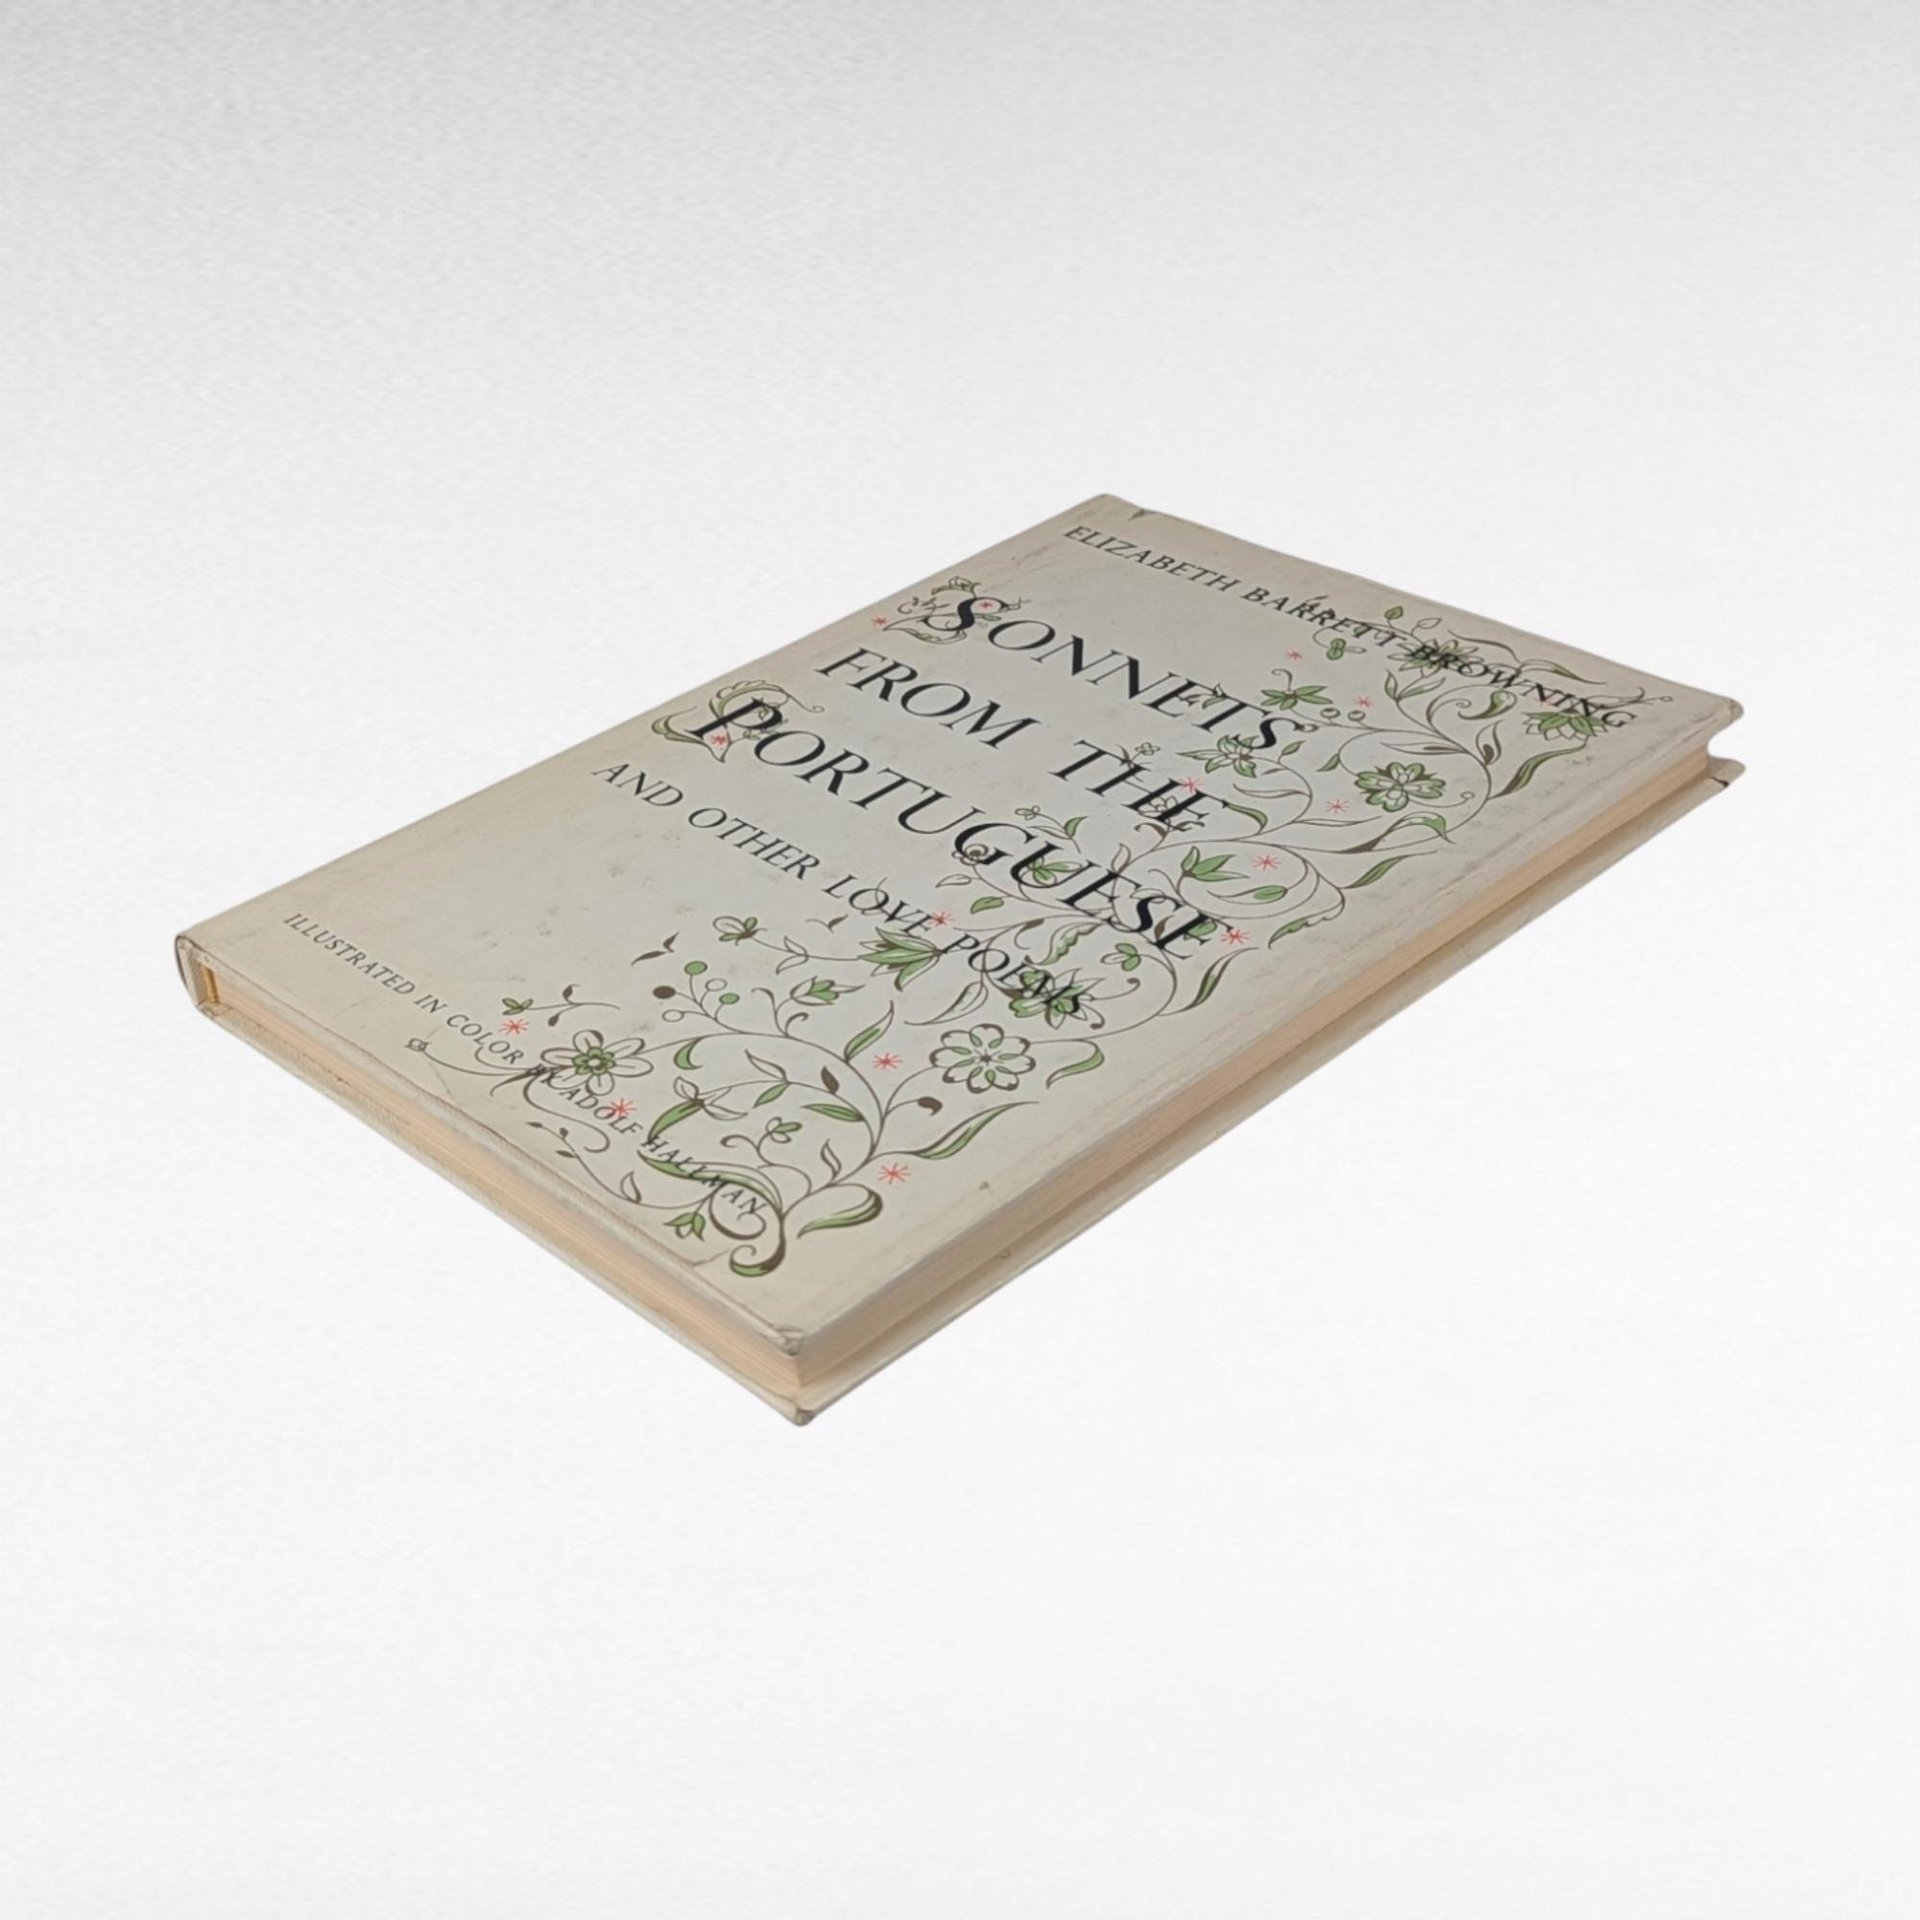 ELIZABETH BARRETT BROWNING
SONNETS
FROM THE
PORTUGUESE
AND OTHER LOVE POEMS
ILLUSTRATED IN COLOR BY ADOLF HALLMAN